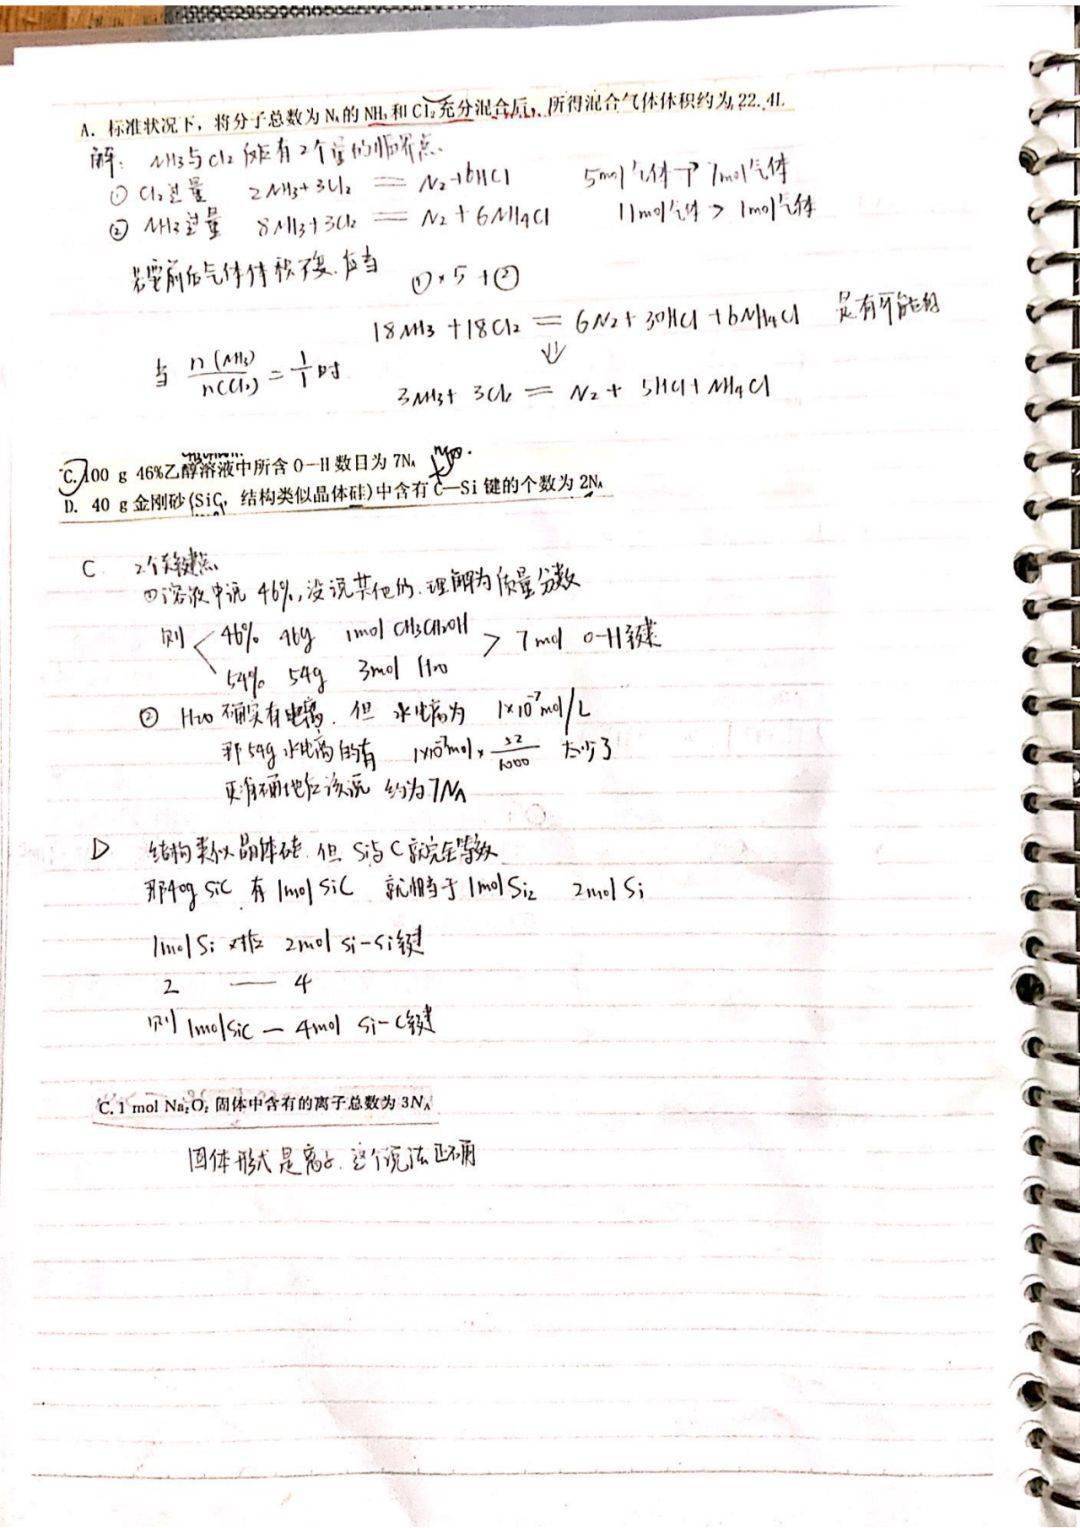 A. 标准状况下，将分子总数为 N_A的 NH₃和 Cl₂充分混合后，所得混合气体体积约为 22.4L
解: NH3与Cl2 反应有2个量的临界点.
① Cl2过量 2NH3+3Cl2 = N2+6HCl 5mol气体→7mol气体
② NH3过量 8NH3+3Cl2 = N2+6NH4Cl 11mol气体→1mol气体
若要前后气体体积不变,应当 ①×5+②
18NH3+18Cl2 = 6N2+30HCl+6NH4Cl 是有可能的
当 n(NH3)/n(Cl2) = 1/1 时 ⇓
3NH3+3Cl2 = N2+5HCl+NH4Cl
C. 100 g 46%乙醇溶液中所含 O—H 数目为 7N_A H2O
D. 40 g 金刚砂(SiC，结构类似晶体硅)中含有 C—Si 键的个数为 2N_A
C 2个关键点.
①溶液中说 46%,没说其他的.理解为质量分数
则 46% 46g 1mol CH3CH2OH > 7mol O-H键
54% 54g 3mol H2O
② H2O 确实有电离.但 水电离为 1×10⁻⁷mol/L
那54g水电离的有 1×10⁻⁷mol× /1000 太少了
更准确地应该说 约为7N_A
D 结构类似晶体硅.但 Si与C就完全等效
那40g SiC 有 1mol SiC 就相当于 1mol Si2 2mol Si
1mol Si 对应 2mol Si-Si键
2 —— 4
则 1mol SiC — 4mol Si-C键
C. 1 mol Na₂O₂ 固体中含有的离子总数为 3N_A
固体形式是离子.这个说法正确